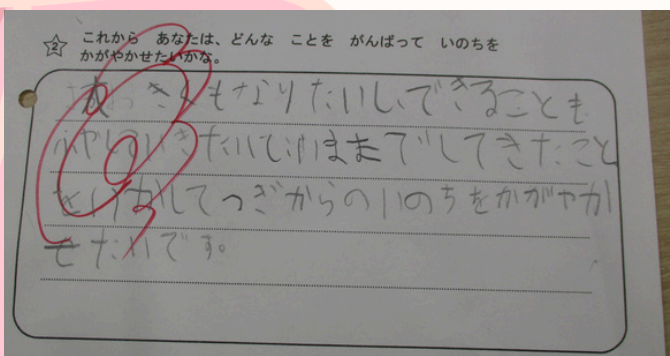 2 これから あなたは、どんな ことを がんばって いのちを
かがやかせたいかな。
大きくもなりたいし、できることも
ふやしていきたいしいままでしてきたこと
をいかしてつぎからのいのちをかがやか
せたいです。